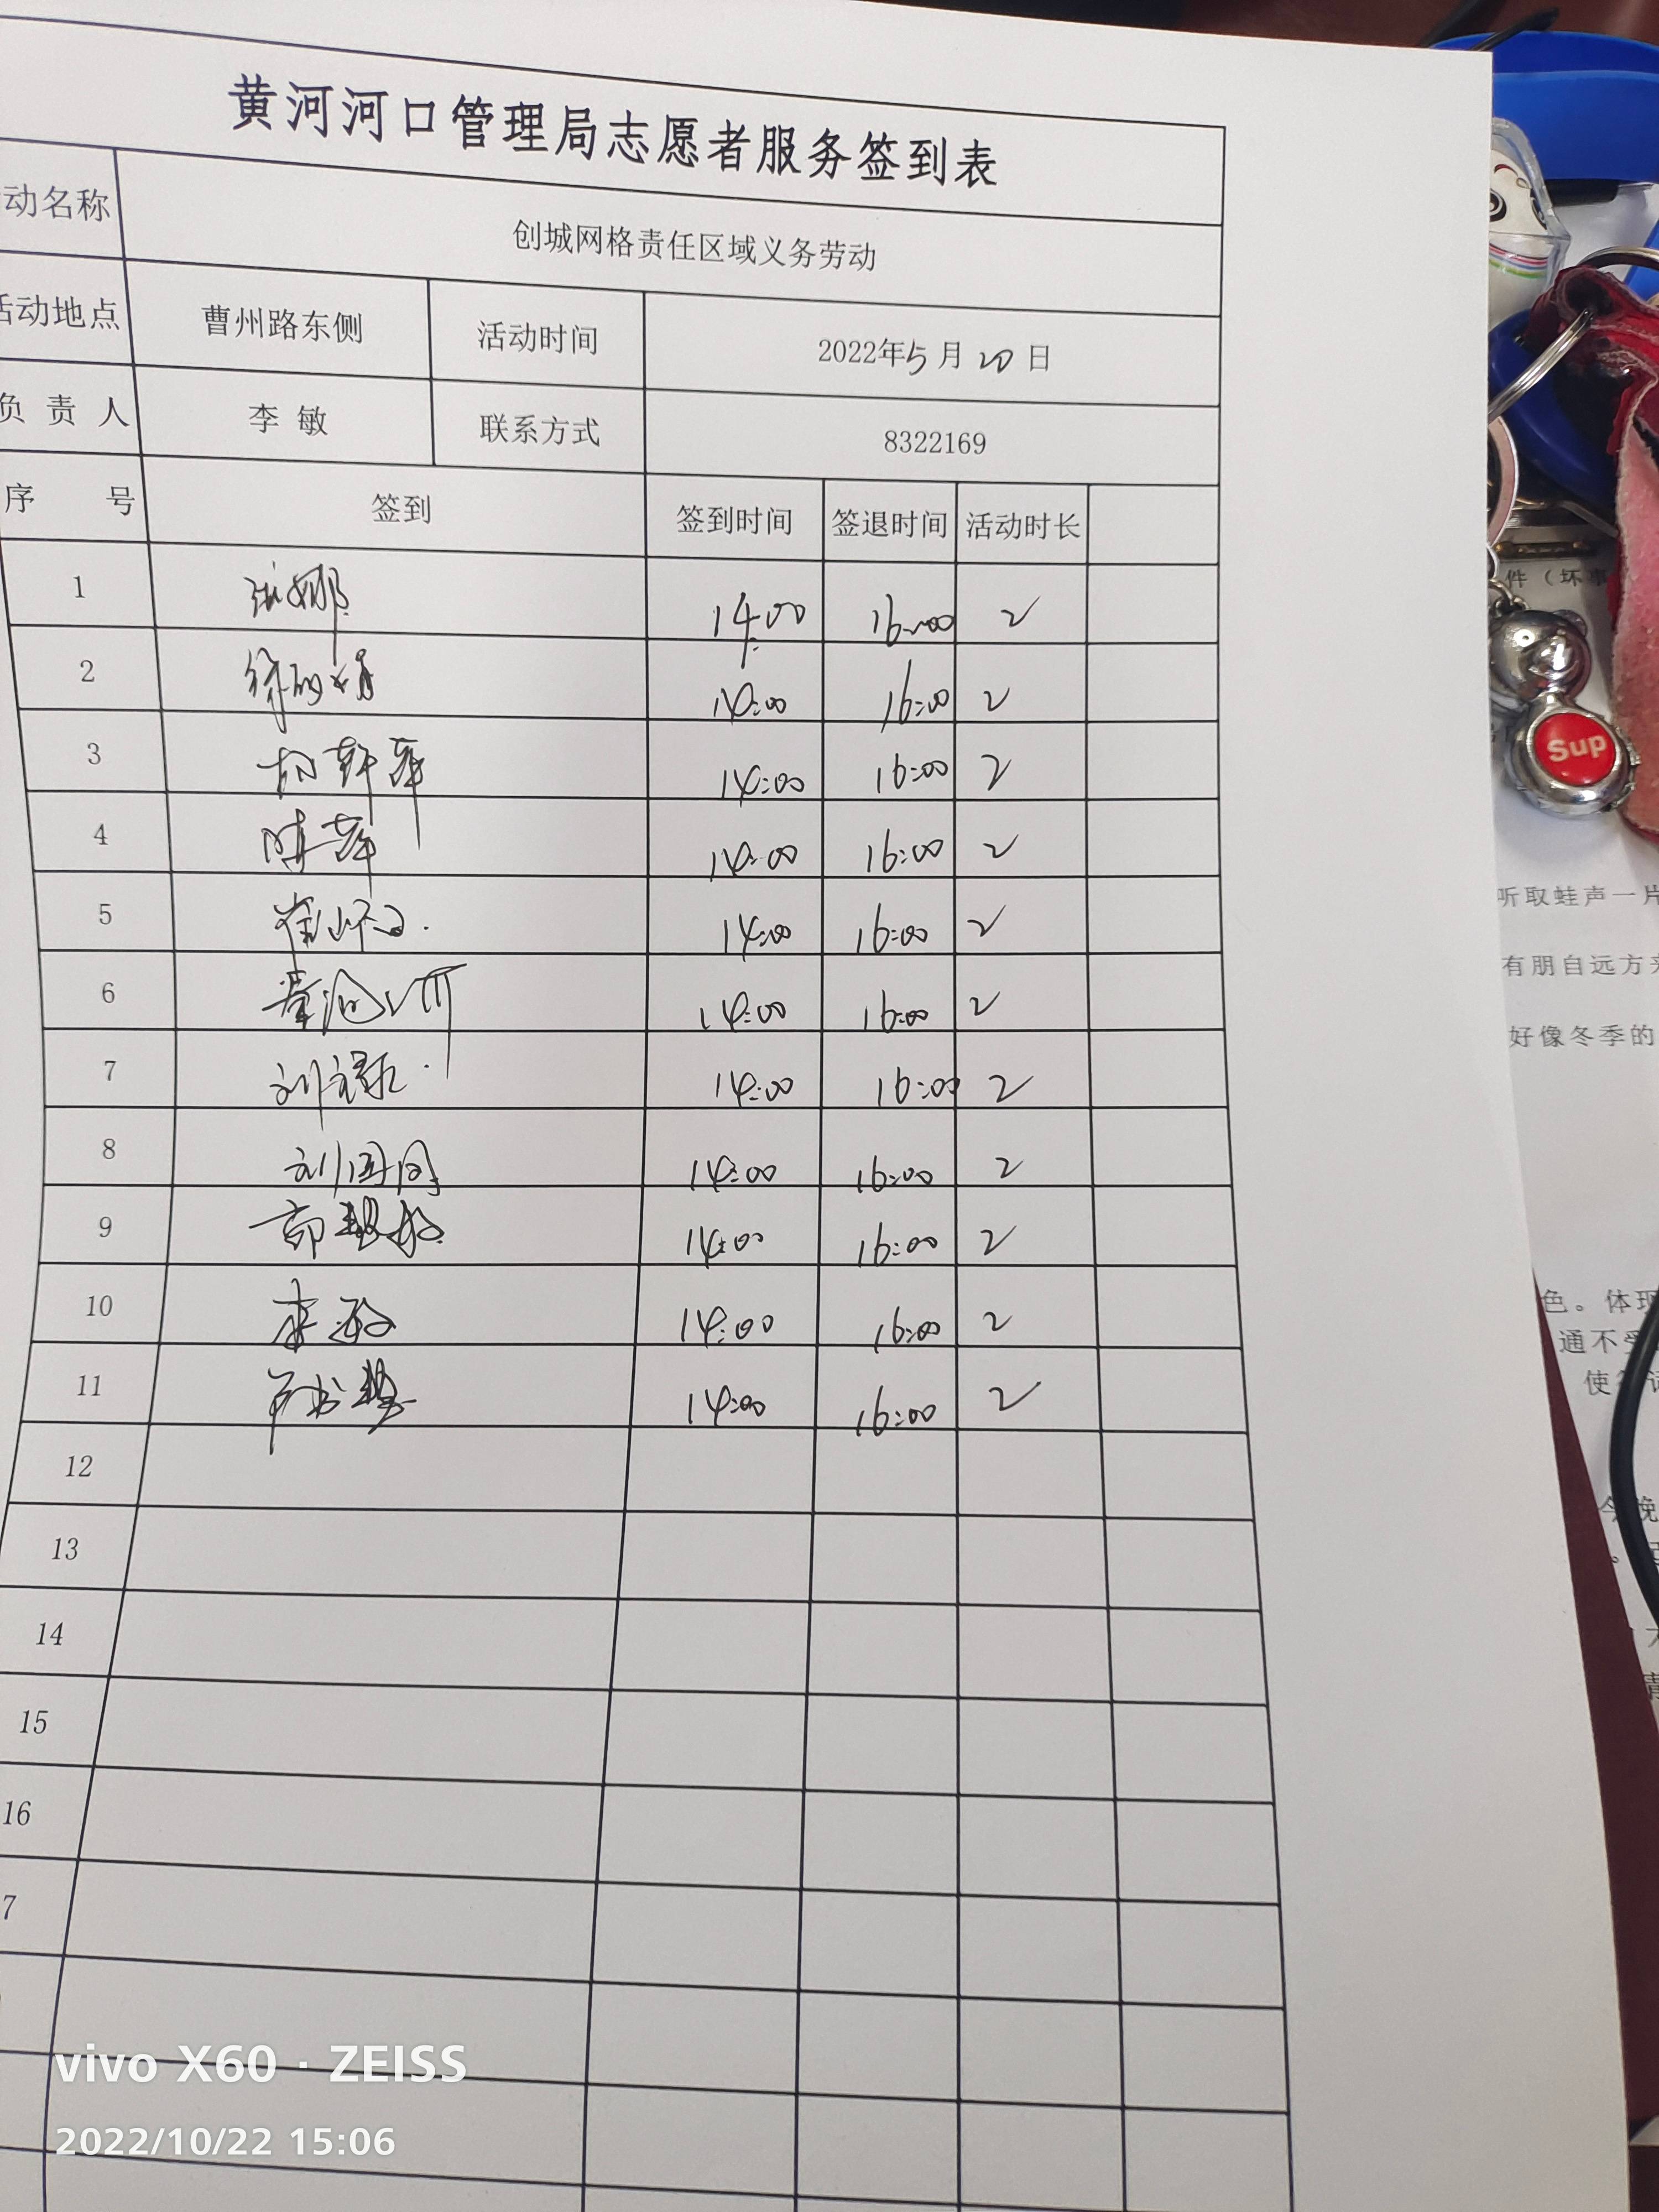 黄河河口管理局志愿者服务签到表
动名称 创城网格责任区域义务劳动
活动地点 曹州路东侧 活动时间 2022年5月20日
负责人 李敏 联系方式 8322169
序号 签到 签到时间 签退时间 活动时长
1 张娜 14:00 16:00 2
2 14:00 16:00 2
3 14:00 16:00 2
4 陈萍 14:00 16:00 2
5 14:00 16:00 2
6 14:00 16:00 2
7 14:00 16:00 2
8 刘国同 14:00 16:00 2
9 14:00 16:00 2
10 李敏 14:00 16:00 2
11 14:00 16:00 2
12
13
14
15
16
7
件（坏事
Sup
听取蛙声一片
有朋自远方来
好像冬季的
色。体现
通不受
使
今晚
vivo X60 · ZEISS
2022/10/22 15:06